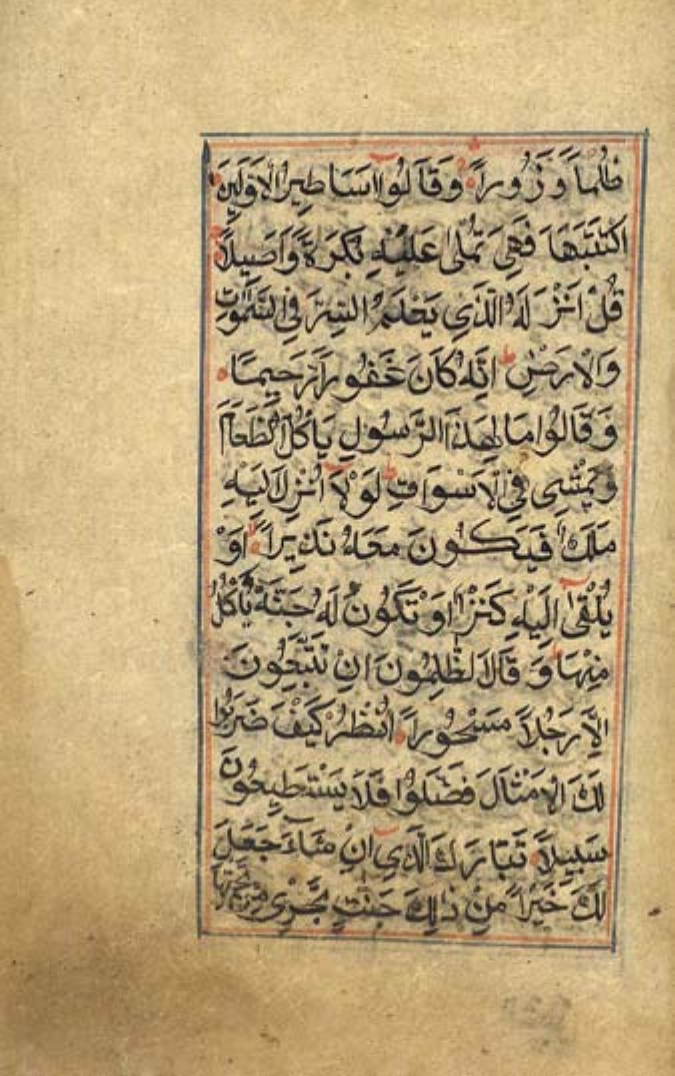 ظُلْماً وَزُوراً وَقَالُوا اَسَاطِيرُ الْاَوَّلِينَ
اكْتَتَبَهَا فَهِيَ تُمْلٰى عَلَيْهِ بُكْرَةً وَاَصِيلاً
قُلْ اَنْزَلَهُ الَّذِي يَعْلَمُ السِّرَّ فِي السَّمٰوٰتِ
وَالْاَرْضِ اِنَّهُ كَانَ غَفُوراً رَحِيماً
وَقَالُوا مَا لِهٰذَا الرَّسُولِ يَأْكُلُ الطَّعَامَ
وَيَمْشِي فِي الْاَسْوَاقِ لَوْلَا اُنْزِلَ اِلَيْهِ
مَلَكٌ فَيَكُونَ مَعَهُ نَذِيراً اَوْ
يُلْقٰى اِلَيْهِ كَنْزٌ اَوْ تَكُونُ لَهُ جَنَّةٌ يَأْكُلُ
مِنْهَا وَقَالَ الظّٰلِمُونَ اِنْ تَتَّبِعُونَ
اِلَّا رَجُلاً مَسْحُوراً اُنْظُرْ كَيْفَ ضَرَبُوا
لَكَ الْاَمْثَالَ فَضَلُّوا فَلَا يَسْتَطِيعُونَ
سَبِيلاً تَبَارَكَ الَّذِي اِنْ شَاءَ جَعَلَ
لَكَ خَيْراً مِنْ ذٰلِكَ جَنّٰتٍ تَجْرِي مِنْ تَحْتِهَا